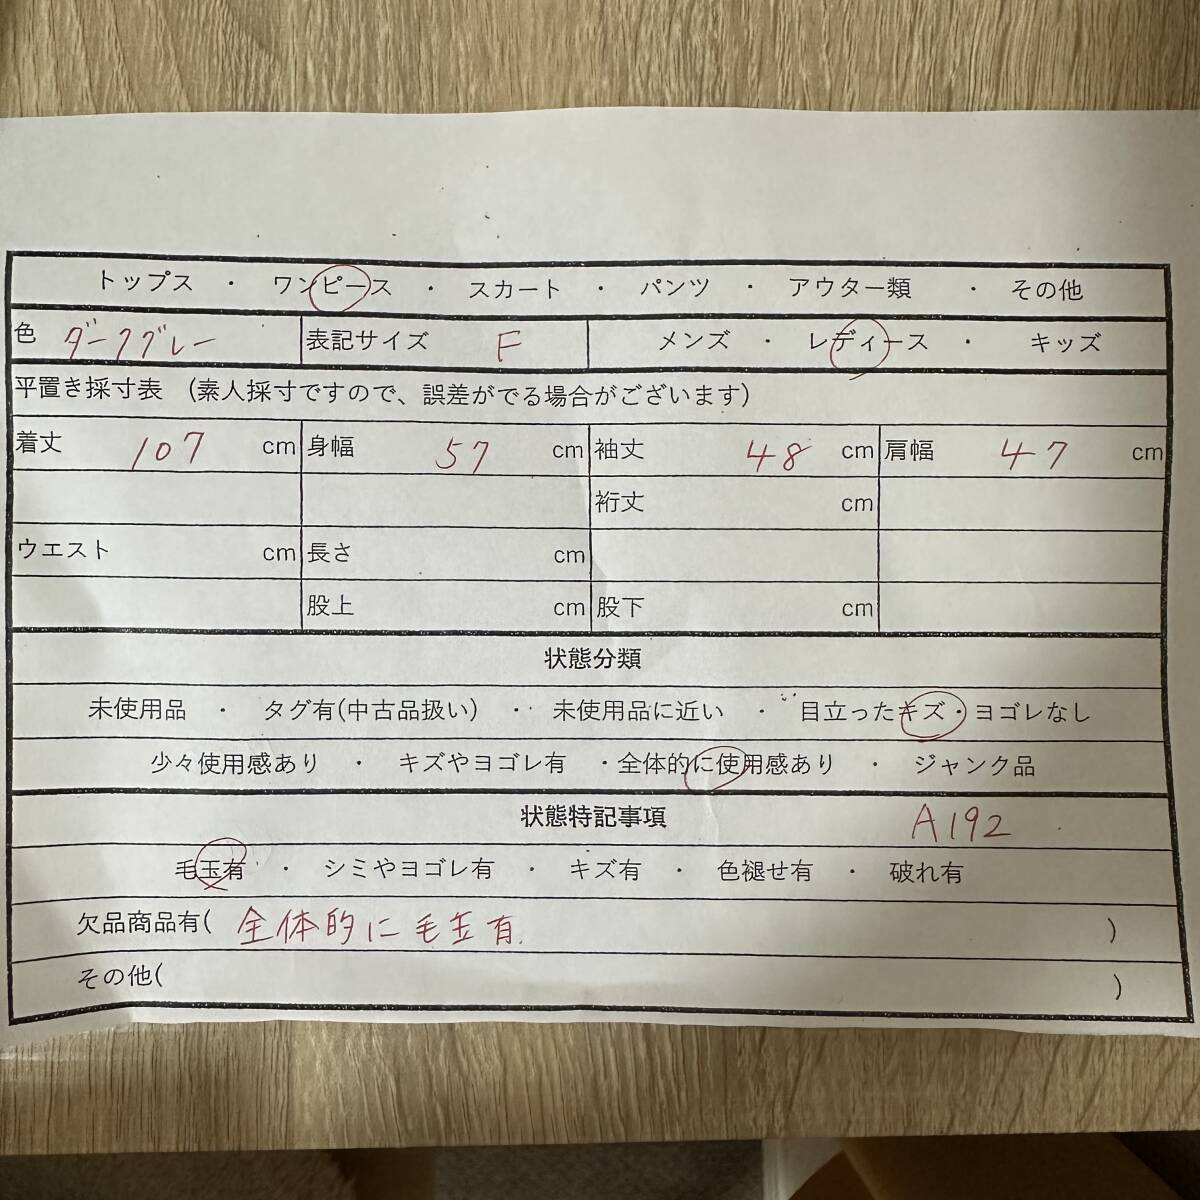 トップス ・ ワンピース ・ スカート ・ パンツ ・ アウター類 ・ その他
色 ダークグレー 表記サイズ F メンズ ・ レディース ・ キッズ
平置き採寸表 (素人採寸ですので、誤差がでる場合がございます)
着丈 107 cm 身幅 57 cm 袖丈 48 cm 肩幅 47 cm
裄丈 cm
ウエスト cm 長さ cm
股上 cm 股下 cm
状態分類
未使用品 ・ タグ有(中古品扱い) ・ 未使用品に近い ・ 目立ったキズ・ヨゴレなし
少々使用感あり ・ キズやヨゴレ有 ・全体的に使用感あり ・ ジャンク品
状態特記事項 A192
毛玉有 ・ シミやヨゴレ有 ・ キズ有 ・ 色褪せ有 ・ 破れ有
欠品商品有( 全体的に毛玉有. )
その他( )